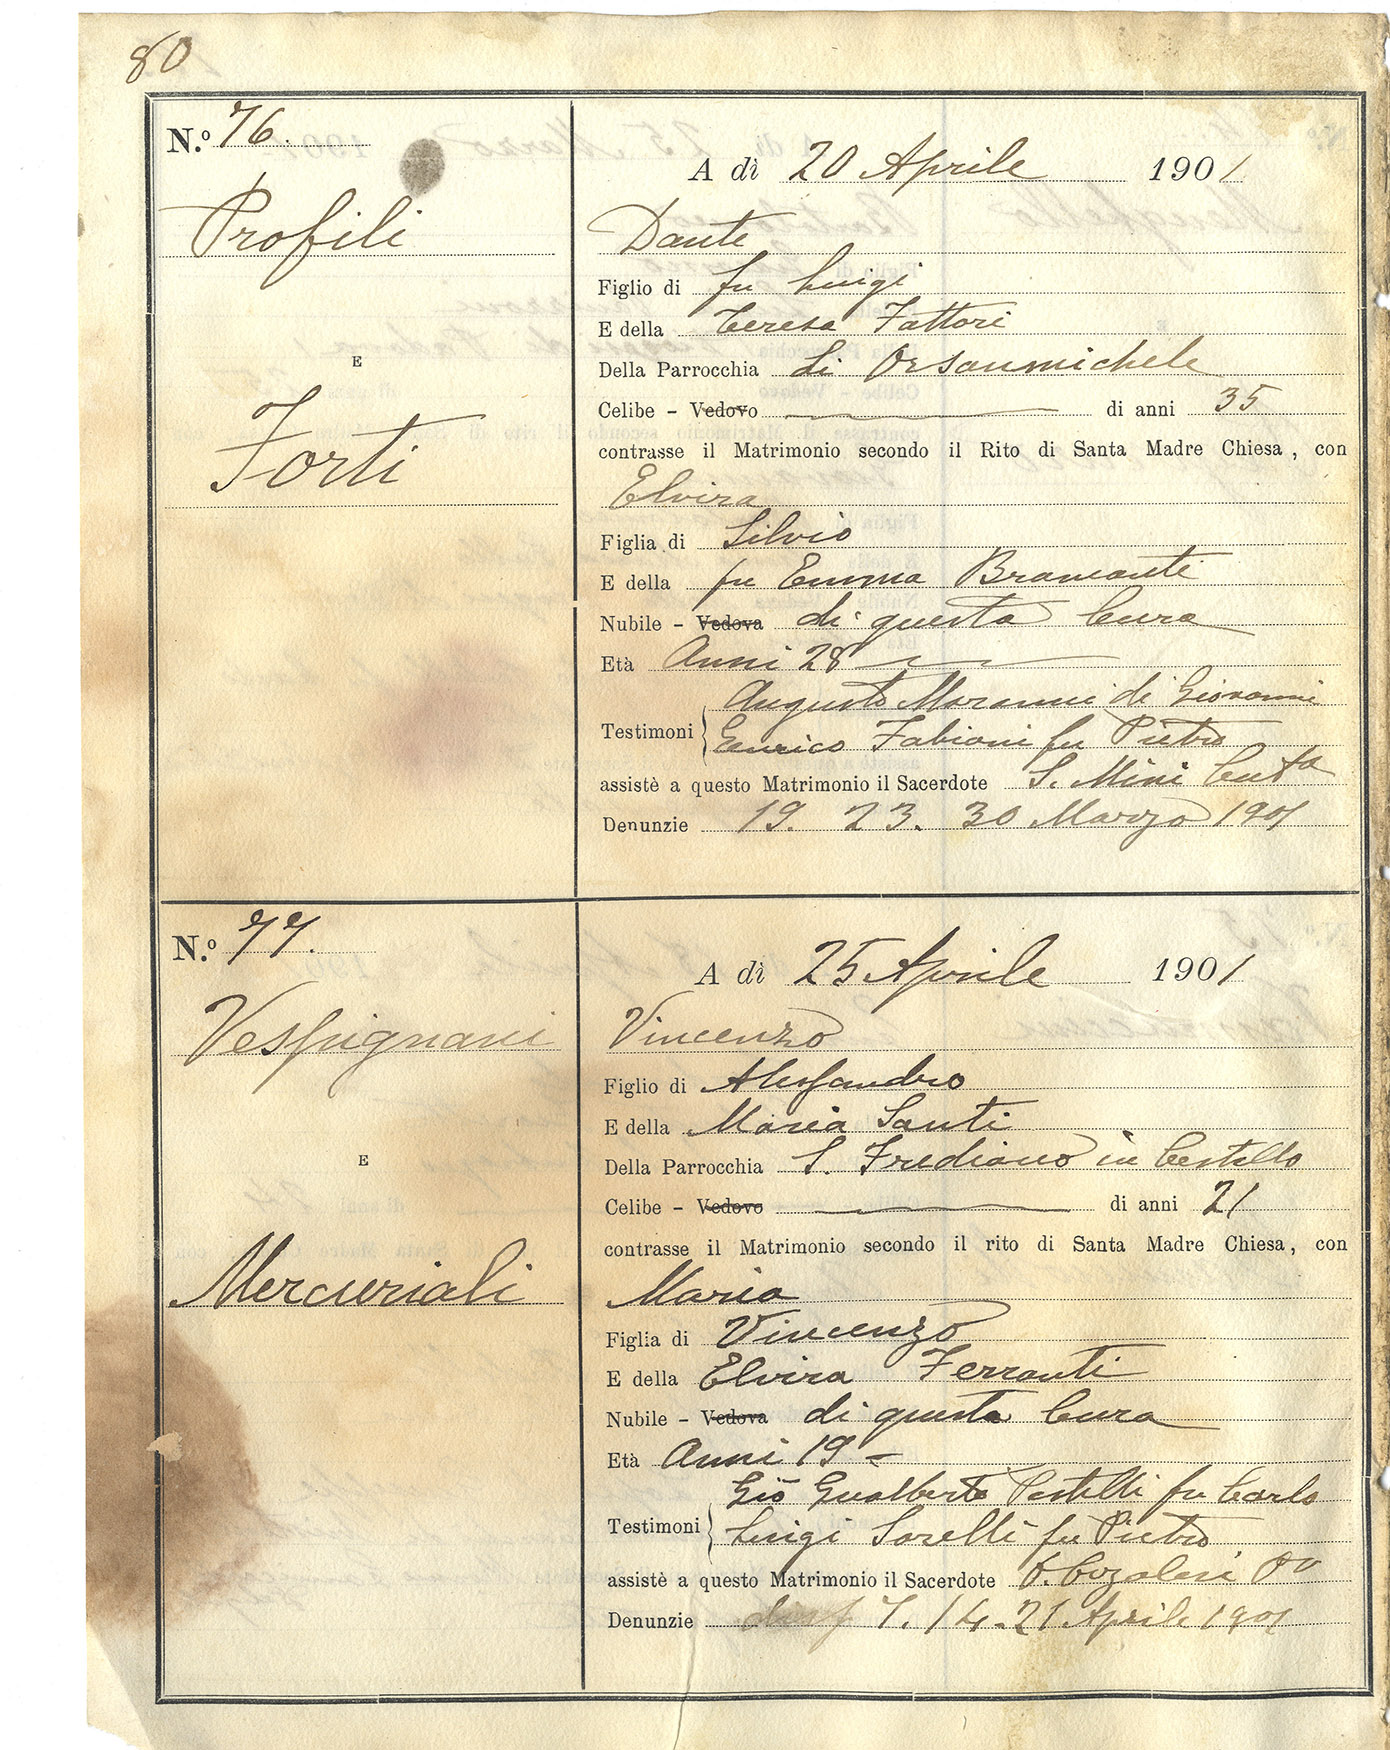 80
N.º 76.
A dì 20 Aprile 1901
Profili
E
Forti
Dante
Figlio di fu Luigi
E della Teresa Fattori
Della Parrocchia di Orsanmichele
Celibe - Vedovo di anni 35
contrasse il Matrimonio secondo il Rito di Santa Madre Chiesa, con
Elvira
Figlia di Silvio
E della fu Emma Bramanti
Nubile - Vedova di questa Cura
Età Anni 28
Augusto di Giovanni
Testimoni Enrico Fabiani fu Pietro
assistè a questo Matrimonio il Sacerdote S. Mini
Denunzie 19. 23. 30 Marzo 1901
N.º 77.
A dì 25 Aprile 1901
Vespignani
E
Mercuriali
Vincenzo
Figlio di Alessandro
E della Maria Santi
Della Parrocchia S. Frediano in Cestello
Celibe - Vedovo di anni 21
contrasse il Matrimonio secondo il rito di Santa Madre Chiesa, con
Maria
Figlia di Vincenzo
E della Elvira Ferranti
Nubile - Vedova di questa Cura
Età Anni 19 -
Giõ Gualberto Pestelli fu Carlo
Testimoni Luigi Sorelli fu Pietro
assistè a questo Matrimonio il Sacerdote
Denunzie 7. 14. 21 Aprile 1901